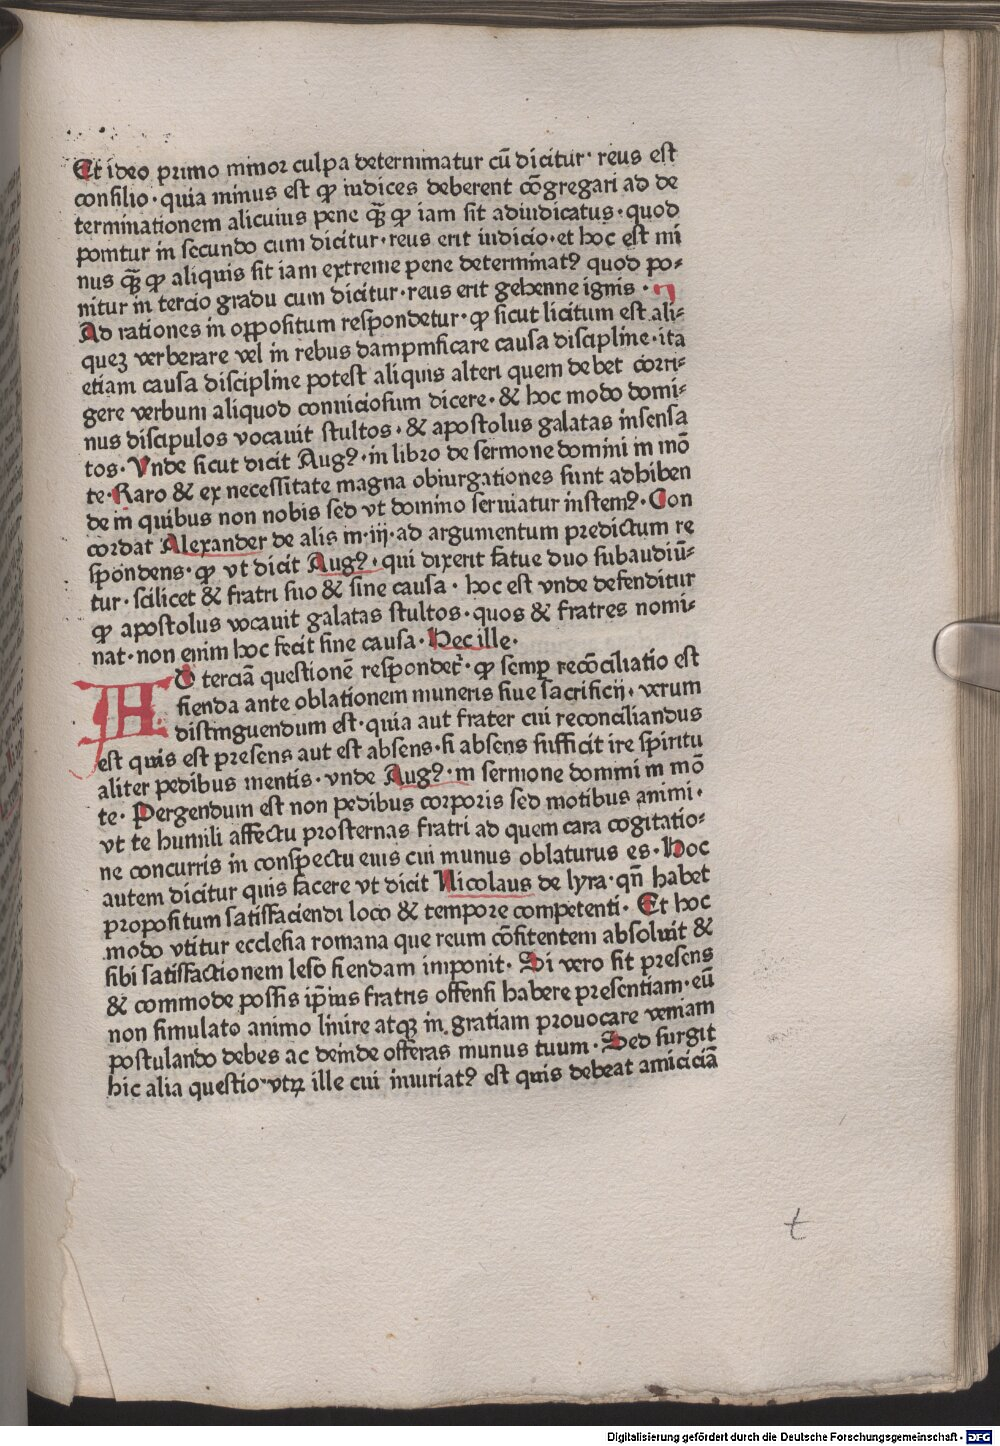 Et ideo primo minor culpa determinatur cū dicitur· reus est
consilio· quia minus est ꝙ iudices deberent cōgregari ad de
terminationem alicuius pene ꝗ̄ꝫ ꝙ iam sit adiudicatus· quod
ponitur in secundo cum dicitur· reus erit iudicio· et hoc est mi
nus ꝗ̄ꝫ ꝙ aliquis sit iam extreme pene determinatꝰ quod po⸗
nitur in tercio gradu cum dicitur· reus erit gehenne ignis ·
Ad rationes in oppositum respondetur· ꝙ sicut licitum est ali⸗
queꝫ verberare vel in rebus dampnificare causa discipline· ita
etiam causa discipline potest aliquis alteri quem debet corri⸗
gere verbum aliquod conuiciosum dicere· & hoc modo domi⸗
nus discipulos vocauit stultos· & apostolus galatas insensa
tos· Vnde sicut dicit Augꝰ· in libro de sermone domini in mō
te· Raro & ex necessitate magna obiurgationes sunt adhiben
de in quibus non nobis sed vt domino seruiatur instemꝰ· Con
cordat Alexander de alis in·iij·ad argumentum predictum re
spondens· ꝙ vt dicit Augꝰ· qui dixerit fatue duo subaudiū⸗
tur· scilicet & fratri suo & sine causa · hoc est vnde defenditur
ꝙ apostolus vocauit galatas stultos· quos & fratres nomi⸗
nat· non enim hoc fecit sine causa· Hec ille·
AD terciā questionē respondet̄· ꝙ semp reconciliatio est
fienda ante oblationem muneris siue sacrificij· verum
distinguendum est· quia aut frater cui reconciliandus
est quis est presens aut est absens· si absens sufficit ire spiritu
aliter pedibus mentis· vnde Augꝰ· in sermone domini in mō
te· Pergendum est non pedibus corporis sed motibus animi·
vt te humili affectu prosternas fratri ad quem cara cogitatio⸗
ne concurris in conspectu eius cui munus oblaturus es· Hoc
autem dicitur quis facere vt dicit Nicolaus de lyra· qn̄ habet
propositum satisfaciendi loco & tempore competenti· Et hoc
modo vtitur ecclesia romana que reum cōfitentem absoluit &
sibi satisfactionem leso fiendam imponit· Si vero sit presens
& commode possis ip̄ius fratris offensi habere presentiam· eū
non simulato animo linire atqꝫ in gratiam prouocare veniam
postulando debes ac deinde offeras munus tuum· Sed surgit
hic alia questio· vtꝝ ille cui iniuriatꝰ est quis debeat amiciciā
t
Digitalisierung gefördert durch die Deutsche Forschungsgemeinschaft - DFG